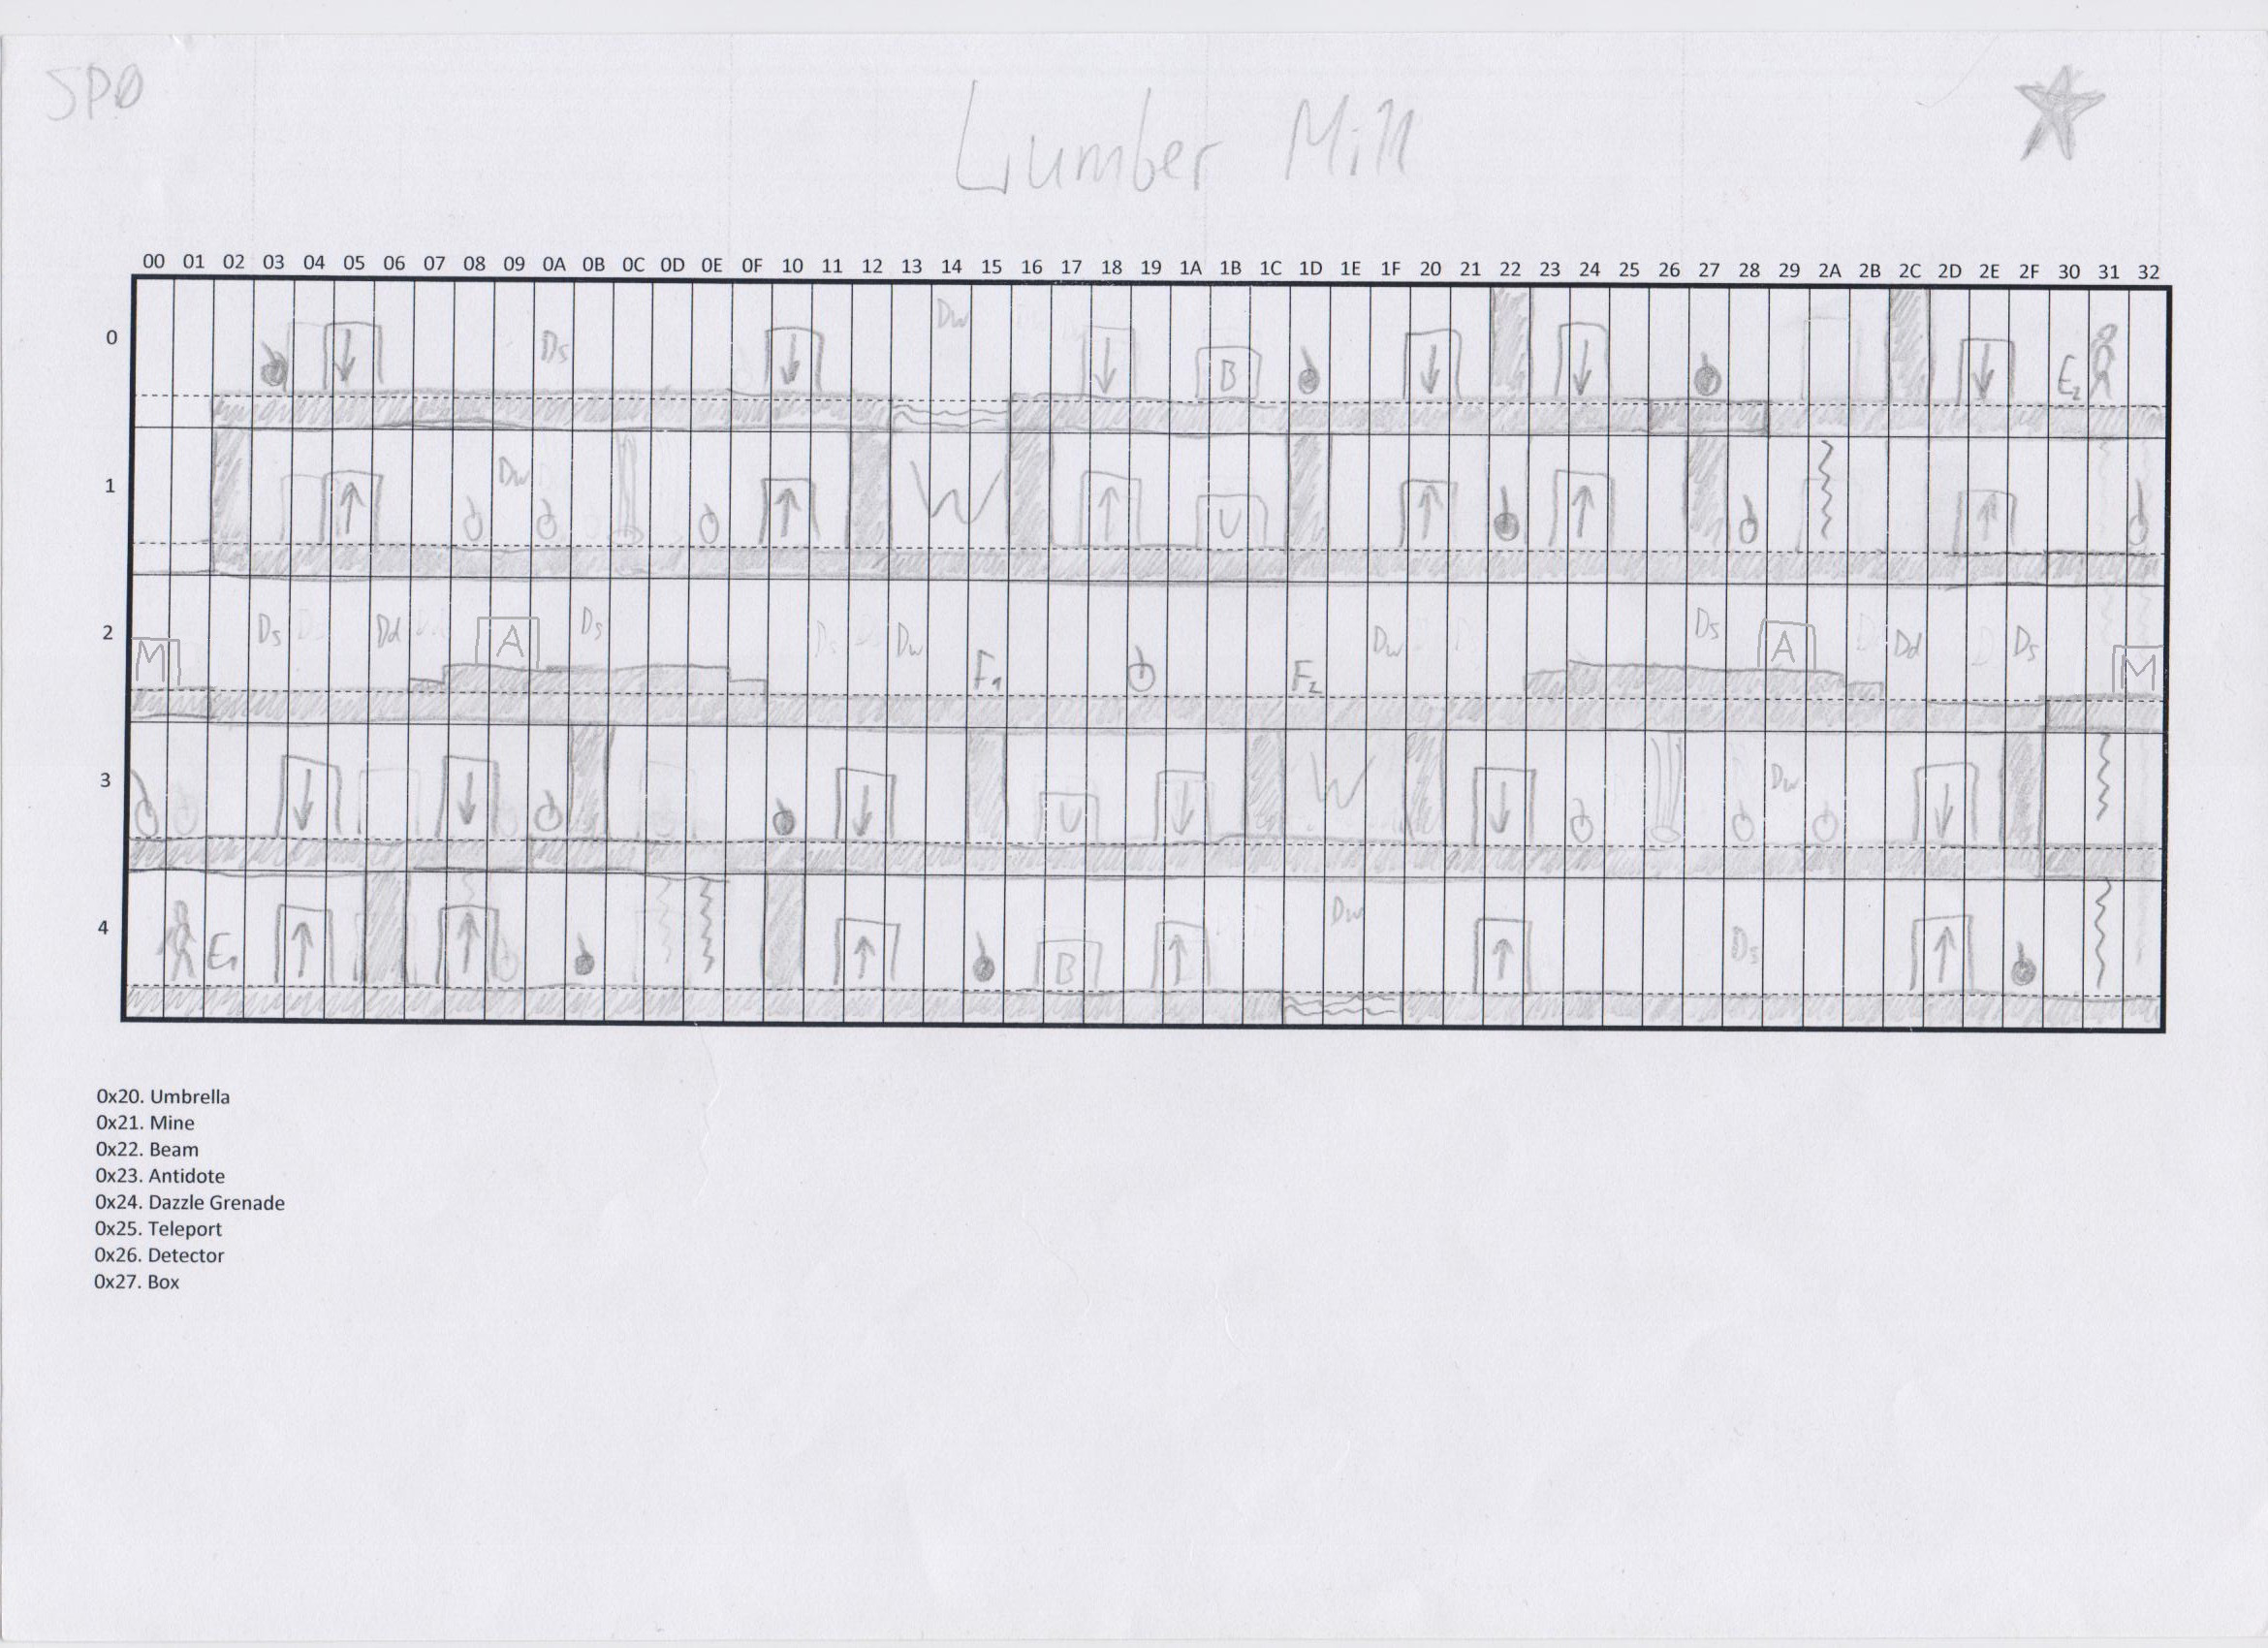 SPØ
Lumber Mill
00 01 02 03 04 05 06 07 08 09 0A 0B 0C 0D 0E 0F 10 11 12 13 14 15 16 17 18 19 1A 1B 1C 1D 1E 1F 20 21 22 23 24 25 26 27 28 29 2A 2B 2C 2D 2E 2F 30 31 32
0 Ds Dw B E2
1 Dw W U
2 M Ds Dd A Ds Dw F1 F2 Dw Ds A Dd Ds M
3 U W Dw
4 E1 B Dw Ds
0x20. Umbrella
0x21. Mine
0x22. Beam
0x23. Antidote
0x24. Dazzle Grenade
0x25. Teleport
0x26. Detector
0x27. Box